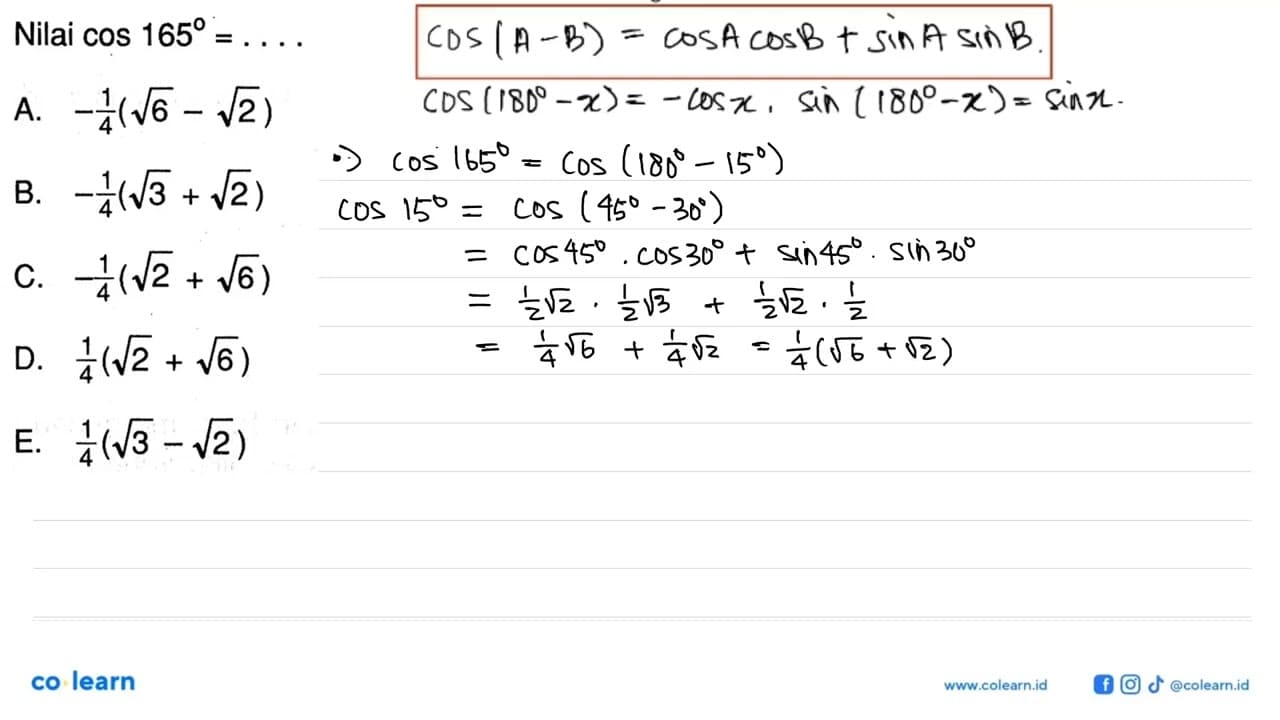 Nilai cos 165° = . . . .
A. -1/4(√6 - √2)
B. -1/4(√3 + √2)
C. -1/4(√2 + √6)
D. 1/4(√2 + √6)
E. 1/4(√3 - √2)
cos(A-B) = cosA cosB + sinA sinB.
cos(180° - x) = -cosx, sin(180° - x) = sinx.
•) cos 165° = cos (180° - 15°)
cos 15° = cos (45° - 30°)
= cos45° . cos30° + sin45° . sin30°
= 1/2√2 . 1/2√3 + 1/2√2 . 1/2
= 1/4√6 + 1/4√2 = 1/4(√6 + √2)
co learn
www.colearn.id
@colearn.id